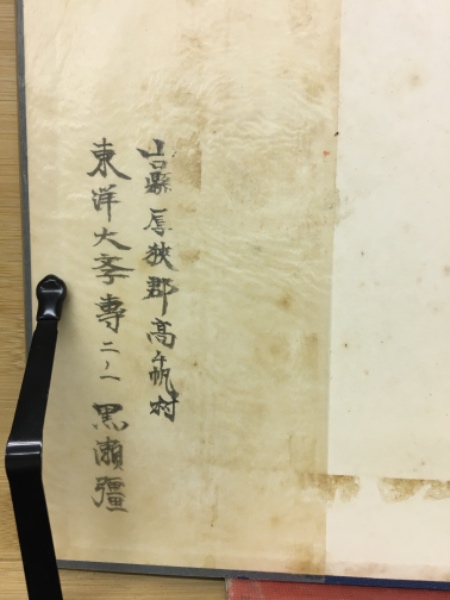 山口縣厚狹郡高千帆村
東洋大斈專二ノ一 黒瀬彊